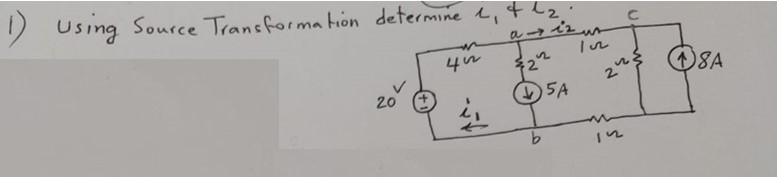 1) Using Source Transformation determine i₁ & i₂.
a → i₂ 1Ω c
4Ω 2Ω 2Ω 8A
20V + - 5A
i₁ ←
b 1Ω